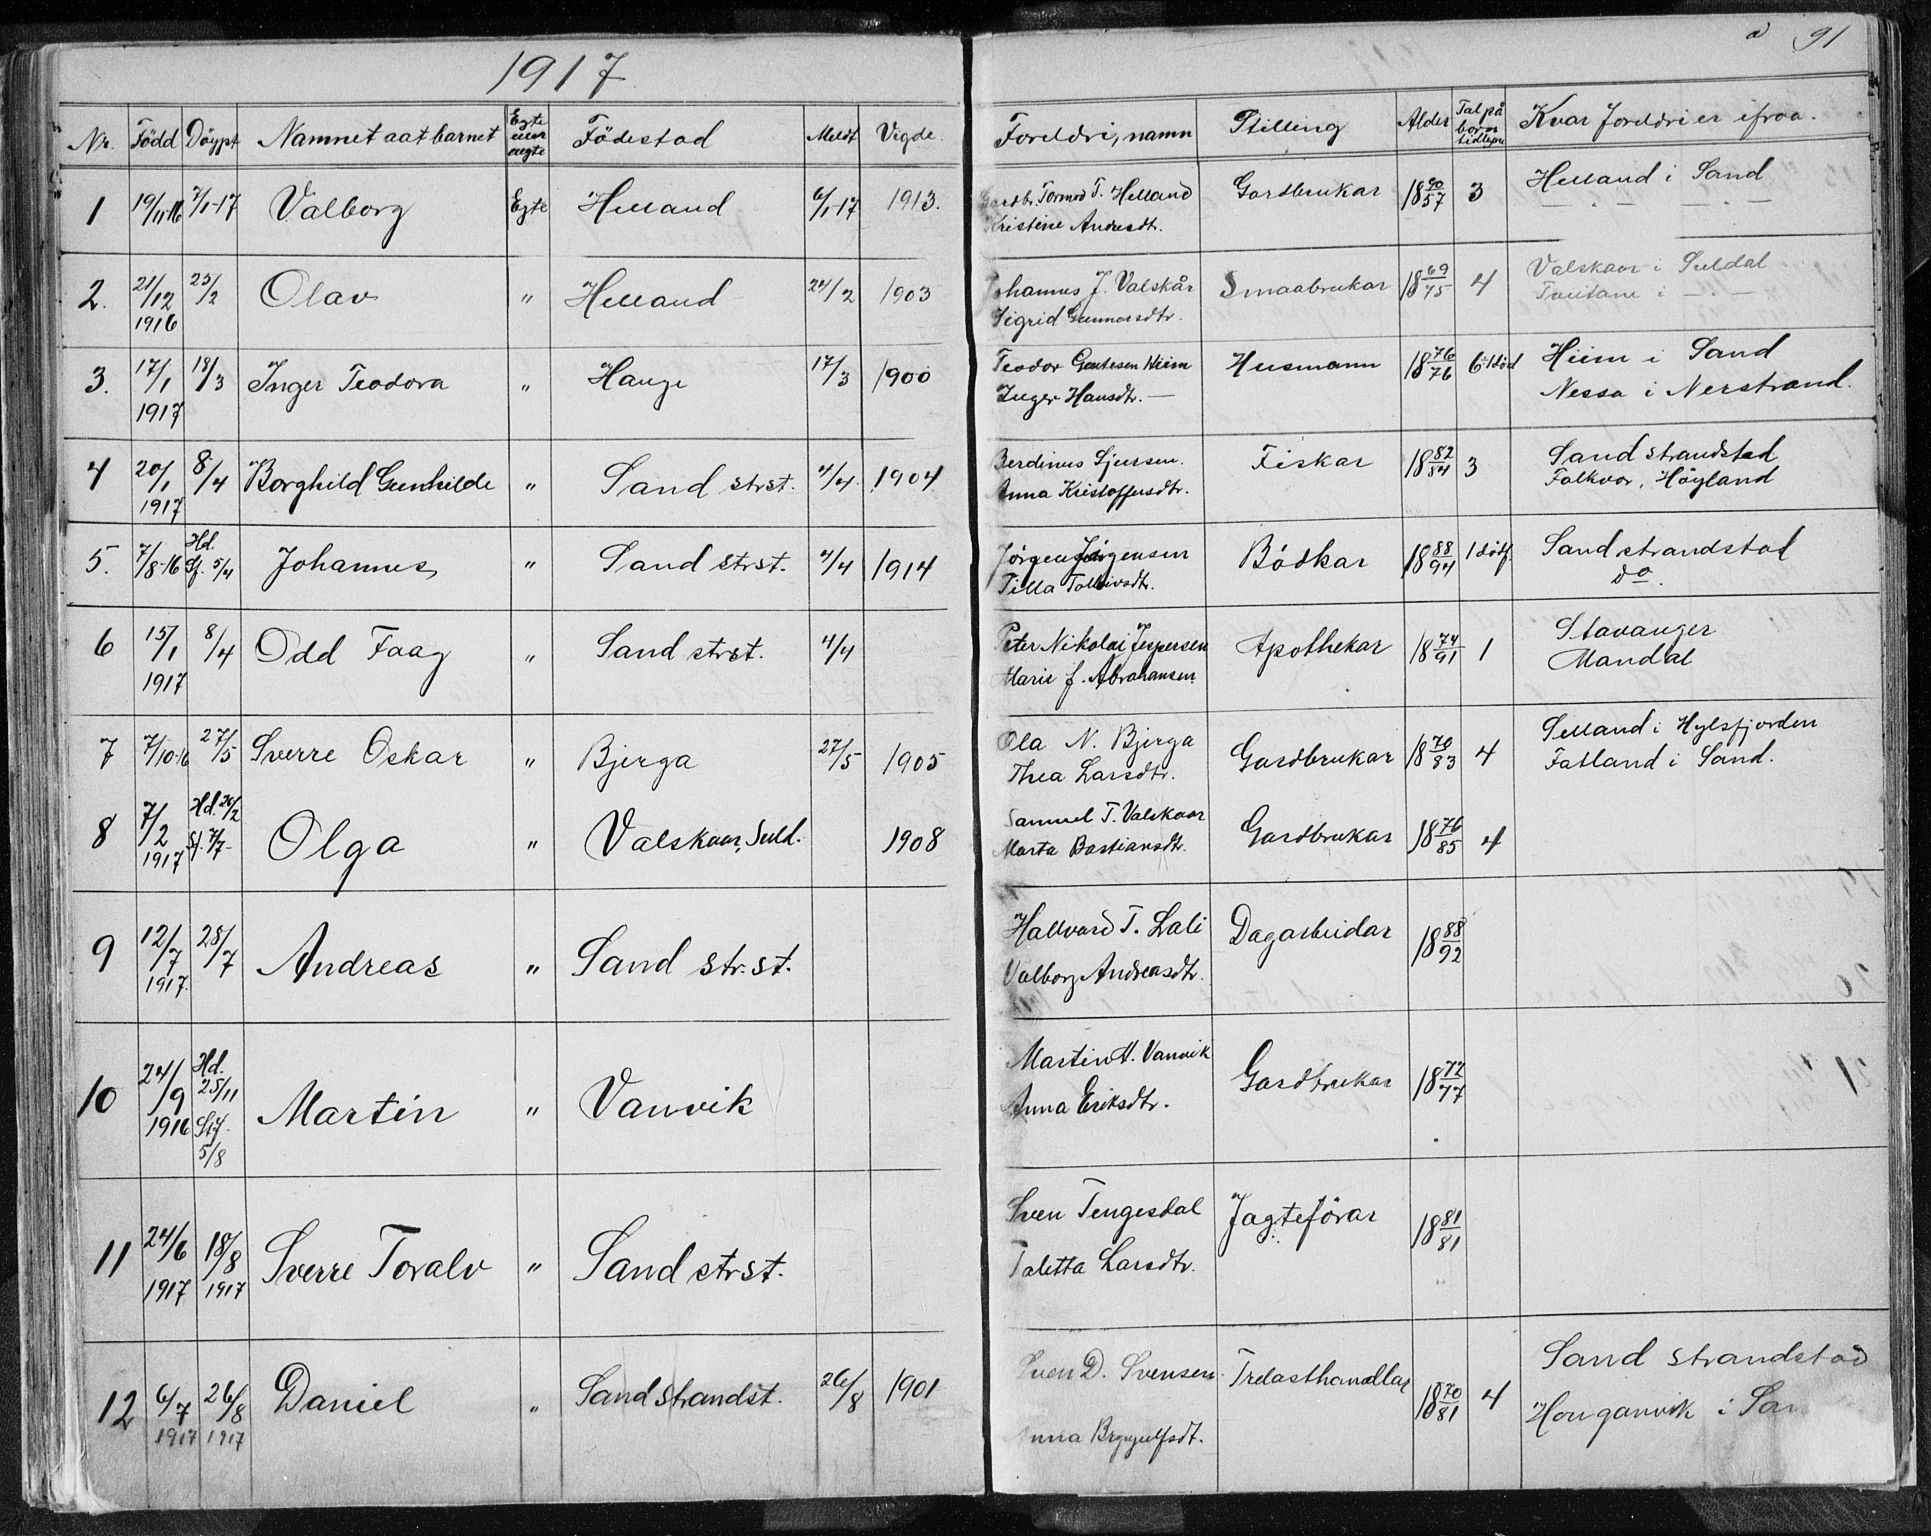 1917
91
Nr. Född Döypt Namnet aat barnet Egte eller uegte Födestad Meldt Vigde Foreldri, namn Stilling Alder Tal på born tidlegare Kvar foreldri er ifraa.
1 19/11-16 7/1-17 Valborg Egte Helland 6/1-17 1913. Tormod T. Helland Gardbrukar 18 90/57 3 Helland i Sand
Kristine Andresdtr. — . — . —
2. 21/12 1916 25/2 Olav " Helland 24/2 1903 Johannes J. Valskår Smaabrukar 18 69/75 4 Valskaar i Suldal
Sigrid Gunnarsdtr. Tveitane i — . —
3. 17/1 1917 18/3 Inger Teodora " Hauge 17/3 1900 Teodor Gautesen Hiim Husmann 18 76/76 6-1död Hiim i Sand
Inger Hansdtr. — Nessa i Nerstrand.
4 20/1 1917 8/4 Borghild Gunhilde " Sand strst. 4/4 1904 Berdinus Sjursen. Fiskar 18 82/84 3 Sand strandstad
Anna Kristoffersdtr. Falkvor, Höyland
5. 7/8-16 Hd. Sf. 5/4 Johannes " Sand strst. 4/4 1914 Jørgen Jörgensen Bödkar 18 88/94 1 dödf. Sand strandstad
Tilla Tolleivsdtr. do.
6 15/1 1917 8/4 Odd Faag " Sand strst. 4/4 Peter Nikolai Jespersen Apothekar 18 74/91 1 Stavanger
Marie f. Abrahamsen. Mandal
7 7/10-16 27/5 Sverre Oskar " Bjerga 27/5 1905 Ola N. Bjerga Gardbrukar 18 70/83 4 Selland i Hylsfjorden
Thea Larsdtr. Fatland i Sand.
8 7/2 1917 Hd. 20/2 Sf. 7/7 Olga " Valskaar, Suld. 1908 Samuel T. Valskaar Gardbrukar 18 76/85 4
Marta Bastiansdtr.
9 12/7 1917. 28/7 Andreas " Sand str.st. Hallvard T. Lali Dagarbeidar 18 88/92
Valborg Andreasdtr.
10 24/9 1916 Hd. 25/11 Stf. 5/8 Martin " Vanvik Martin H. Vanvik Gardbrukar 18 72/77
Anna Eriksdtr.
11 24/6 1917 18/8 1917 Sverre Toralv " Sand strst. Sven Tengesdal Jagteförar 18 81/81
Taletta Larsdtr.
12 6/7 1917 26/8 1917 Daniel " Sand strandst. 26/8 1901 Sven D. Svensen Trelasthandlar 18 70/81 4 Sand strandstad
Anna Brynjulfsdt. Houganvik i San